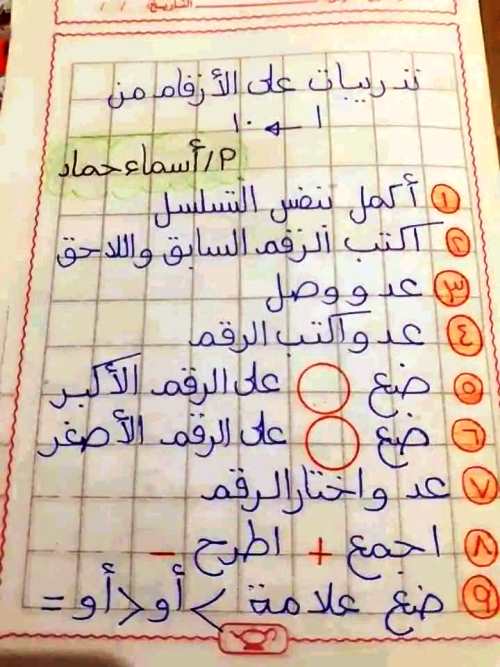 التاريخ: / /
تدريبات على الأرقام من
١ ← ١٠
م/أسماء حماد
١ أكمل بنفس التسلسل
٢ اكتب الرقم السابق واللاحق
٣ عد ووصل
٤ عد واكتب الرقم
٥ ضع ◯ على الرقم الأكبر
٦ ضع ◯ على الرقم الأصغر
٧ عد واختار الرقم
٨ اجمع + اطرح -
٩ ضع علامة > أو < أو =